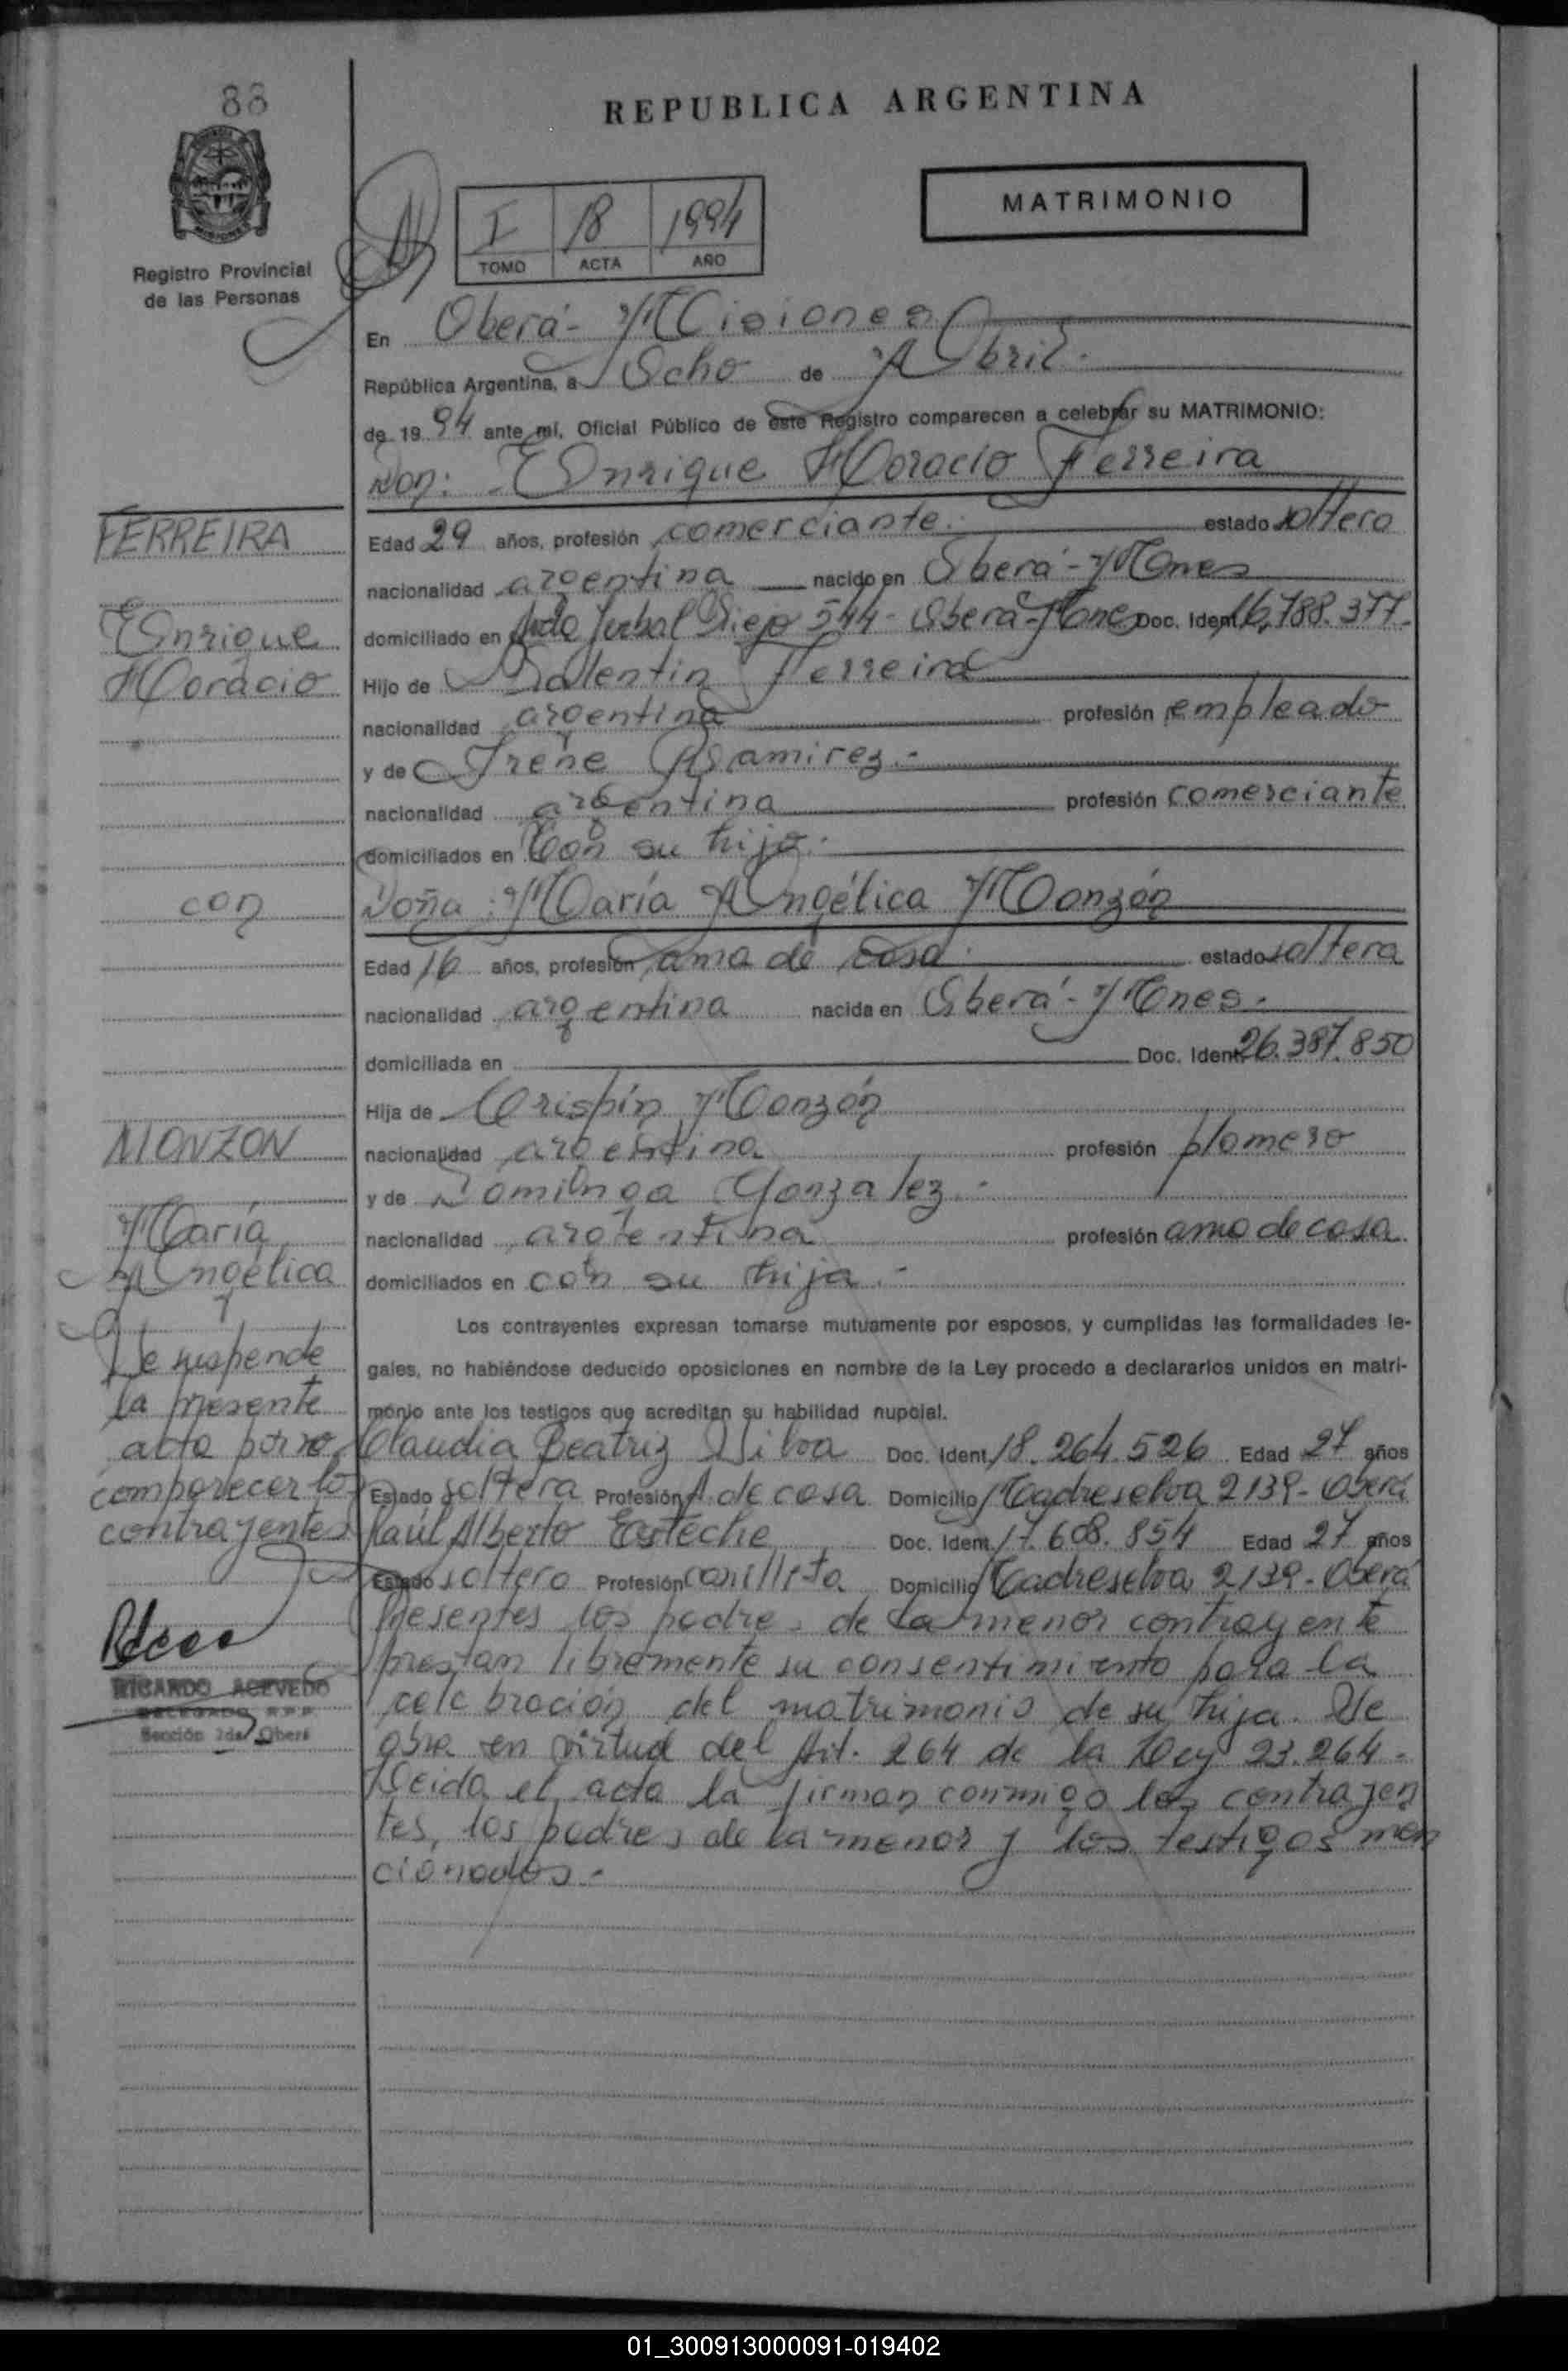 88
REPUBLICA ARGENTINA
MATRIMONIO
I 18 1994
TOMO ACTA AÑO
Registro Provincial
de las Personas
En Oberá - Misiones
República Argentina, a Ocho de Abril.
de 1994 ante mí, Oficial Público de este Registro comparecen a celebrar su MATRIMONIO:
Don: Enrique Horacio Ferreira
FERREIRA
Edad 29 años, profesión comerciante. estado soltero
nacionalidad argentina nacido en Oberá - Mnes
Enrique
domiciliado en Yerbal Viejo 544 - Oberá - Mnes Doc. Ident. 16.788.377.
Horacio
Hijo de Valentin Ferreira
nacionalidad argentina profesión empleado
y de Irene Ramirez.-
nacionalidad argentina profesión comerciante
domiciliados en Con su hijo.
con
Doña: María Angélica Monzón
Edad 16 años, profesión ama de casa. estado soltera
nacionalidad argentina nacida en Oberá - Mnes.
domiciliada en Doc. Ident. 26.387.850
Hija de Crispín Monzón
MONZON
nacionalidad argentina profesión plomero
y de Dominga Gonzalez.-
María
nacionalidad argentina profesión ama de casa.
Angélica
domiciliados en con su hija.-
Los contrayentes expresan tomarse mutuamente por esposos, y cumplidas las formalidades le-
Se suspende
gales, no habiéndose deducido oposiciones en nombre de la Ley procedo a declararlos unidos en matri-
la presente
monio ante los testigos que acreditan su habilidad nupcial.
acta por no
Claudia Beatriz Silva Doc. Ident. 18.264.526 Edad 27 años
comparecer los
Estado soltera Profesión A. de casa Domicilio Madreselva 2139 - Oberá
contrayentes
Raúl Alberto Esteche Doc. Ident. 17.608.854 Edad 27 años
Estado soltero Profesión canillita Domicilio Madreselva 2139 - Oberá
Presentes los padres de la menor contrayente
prestan libremente su consentimiento para la
RICARDO ACEVEDO
DELEGADO R.P.P.
Sección 2da Oberá
celebración del matrimonio de su hija. Se
obra en virtud del Art. 264 de la Ley 23.264.
Leida el acta la firman conmigo los contrayen
tes, los padres de la menor y los testigos men
cionados.-
01_300913000091-019402